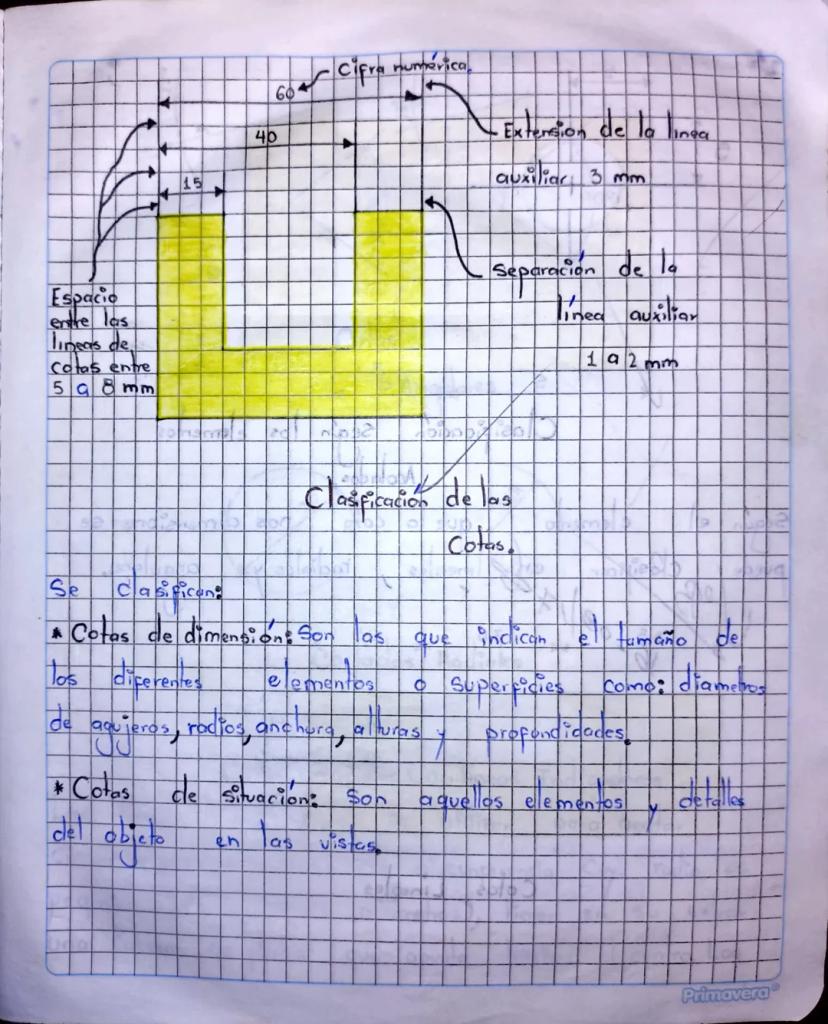 Cifra numérica.
60
40
Extension de la linea
auxiliar 3 mm
15
Separación de la
línea auxiliar
1 a 2 mm
Espacio
entre las
lineas de
cotas entre
5 a 8 mm
Clasificación de las
Cotas.
Se clasifican:
* Cotas de dimensión: Son las que indican el tamaño de
los diferentes elementos o superficies como: diametros
de agujeros, radios, anchura, alturas y profundidades.
* Cotas de situación: son aquellos elementos y detalles
del objeto en las vistas.
Primavera